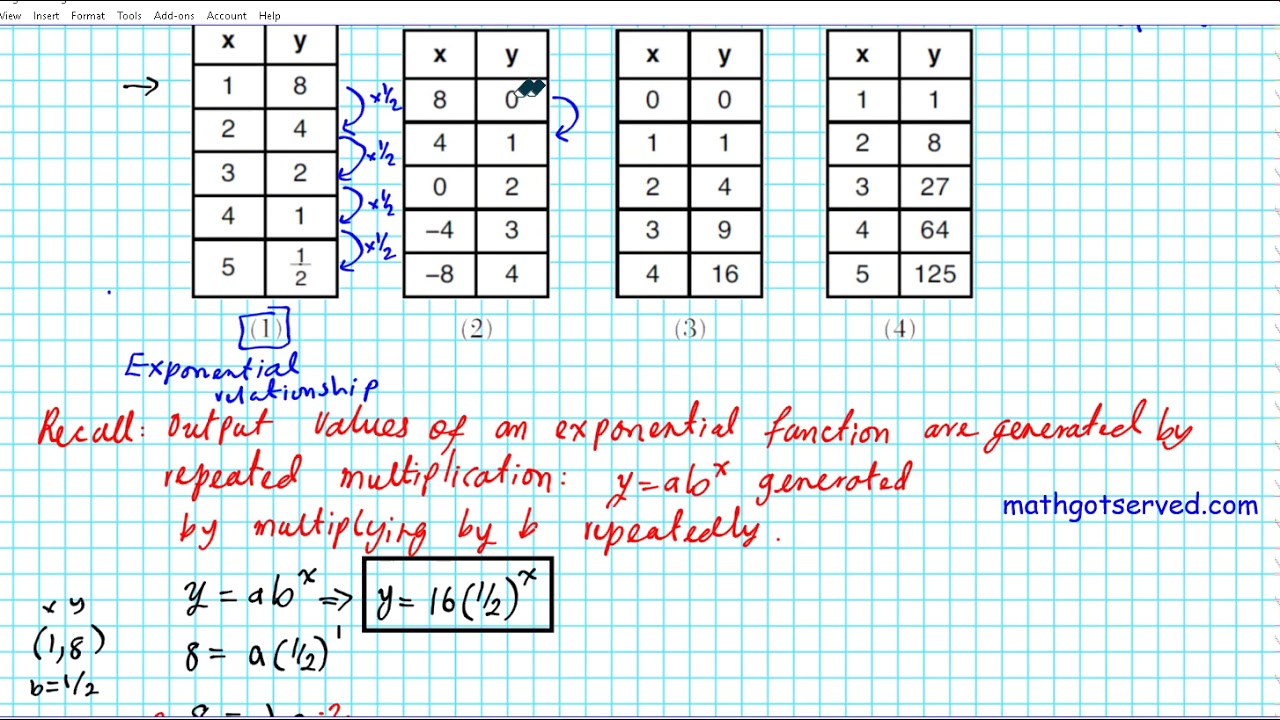 View Insert Format Tools Add-ons Account Help
x y
1 8
2 4
3 2
4 1
5 1/2
x1/2
x1/2
x1/2
x1/2
(1)
x y
8 0
4 1
0 2
−4 3
−8 4
(2)
x y
0 0
1 1
2 4
3 9
4 16
(3)
x y
1 1
2 8
3 27
4 64
5 125
(4)
Exponential
relationship
Recall: Output values of an exponential function are generated by
repeated multiplication: y=ab^x generated
by multiplying by b repeatedly.
mathgotserved.com
y = ab^x ⇒ y= 16(1/2)^x
x y
(1,8)
8 = a(1/2)^1
b=1/2